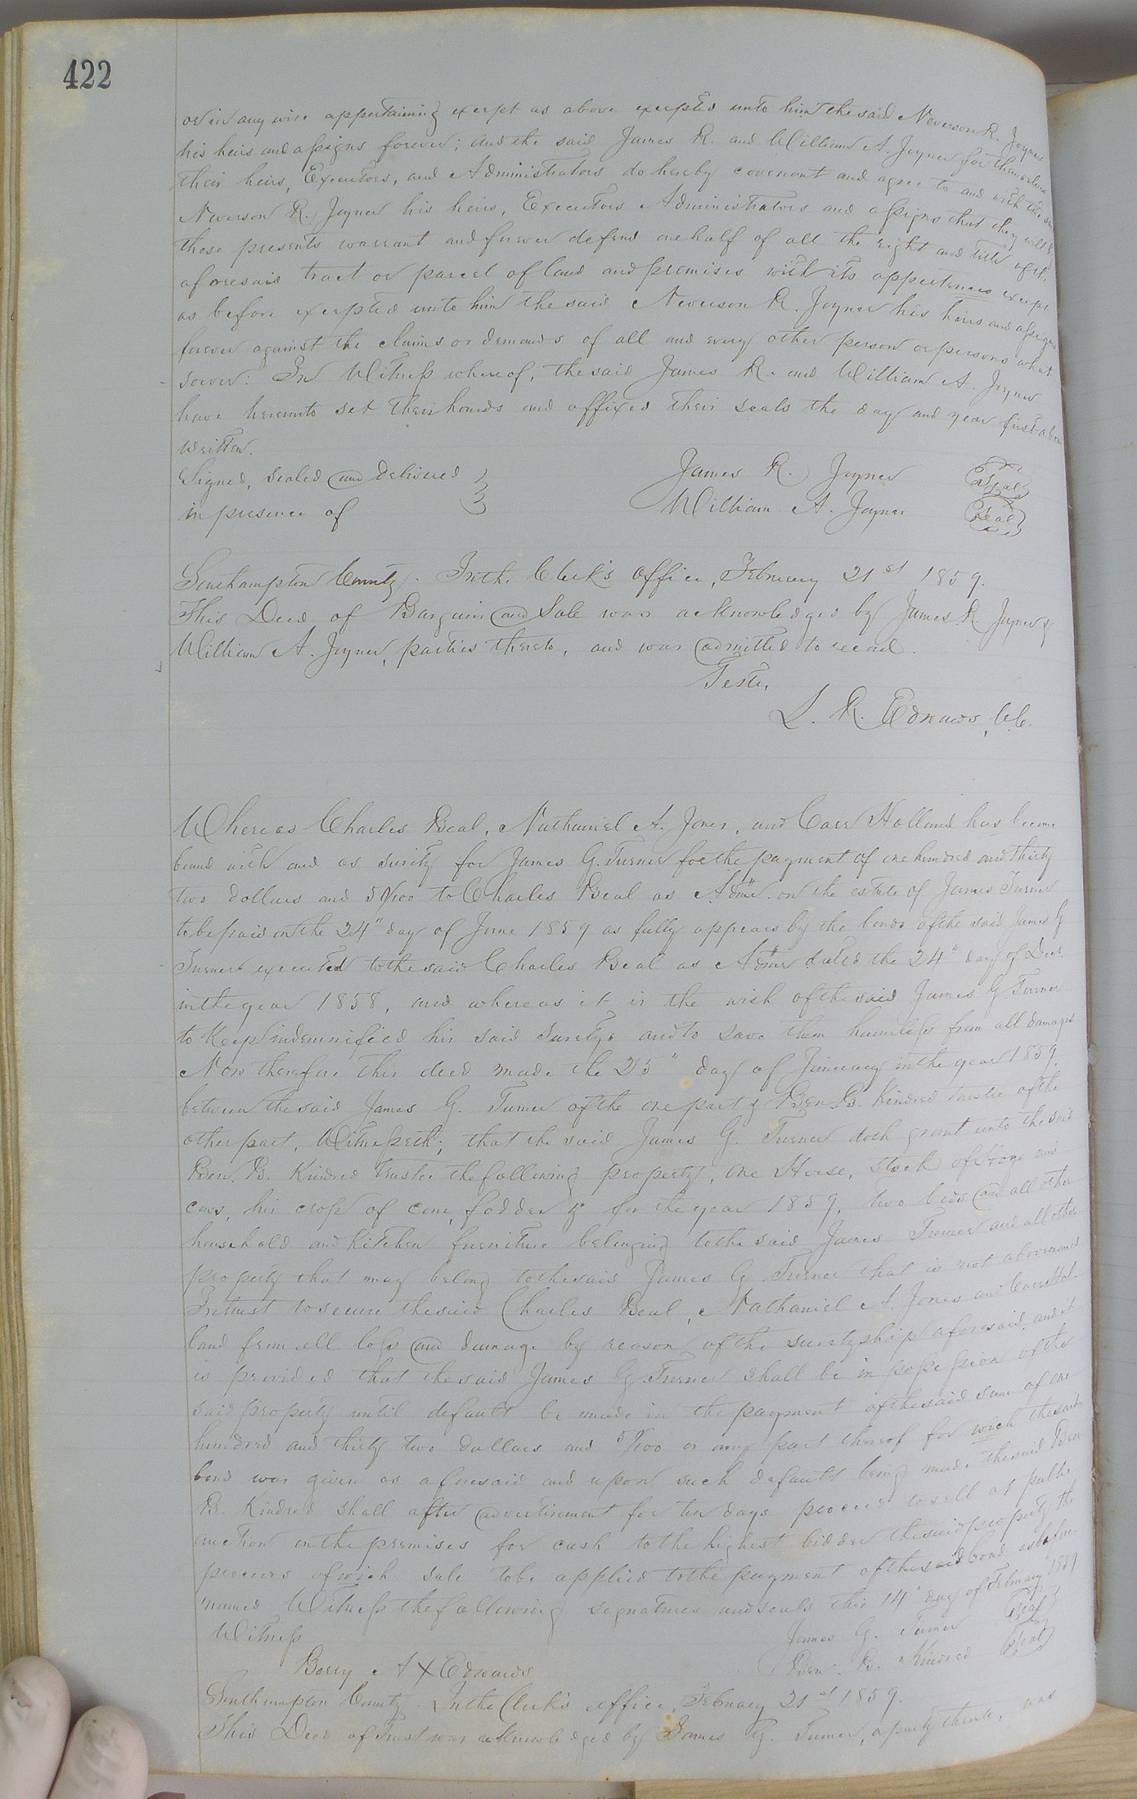 422
or in any wise appertaining except as above excepted unto him the said Neverson R. Joyner
his heirs and assigns forever; And the said James R. and William A. Joyner for themselves
their heirs, Executors, and Administrators do hereby covenant and agree to and with the said
Neverson R. Joyner his heirs, Executors Administrators and assigns that they will &
these presents warrant and forever defend one half of all the right and title of the
aforesaid tract or parcel of land and premises with its appertinences except
as before excepted unto him the said Neverson R. Joyner his heirs and assigns
forever against the claims or demands of all and every other person or persons what
soever: In Witness whereof, the said James R. and William A. Joyner
have hereunto set their hands and affixed their seals the day and year first above
written.
Signed, sealed and delivered James R. Joyner Seal
in presence of William A. Joyner Seal
Southampton County. In the Clerk's office, February 21st 1859.
This Deed of Bargain and Sale was acknowledged by James R. Joyner &
William A. Joyner, parties thereto, and was admitted to record.
Teste,
L. R. Edwards, C.C.
Whereas Charles Beal, Nathaniel A. Jones, and Carr Holland has become
bound with and as surity for James G. Turner for the payment of one hundred and thirty
two dollars and 5/100 to Charles Beal as Admr. on the estate of James Turner
to be paid on the 24" day of June 1859 as fully appears by the bond of the said James G
Turner executed to the said Charles Beal as Admr dated the 24" day of Decr
in the year 1858, and whereas it is the wish of the said James G Turner
to Keep indemnified his said Suretys and to save them harmless from all damages
Now therefore this deed made the 25" day of January in the year 1859
between the said James G. Turner of the one part & Ben. B. Kindred trustee of the
other part, Witnesseth; that the said James G. Turner doth grant unto the said
Ben. B. Kindred trustee the following property, one Horse, stock of Hogs and
cows, his crop of corn, fodder & for the year 1859, two beds and all other
household and kitchen furniture belonging to the said James Turner and all other
property that may belong to the said James G. Turner that is not above named
In trust to secure the said Charles Beal, Nathaniel A. Jones and Carr Hol-
land from all loss and damage by reason of the suretyship aforesaid, and it
is provided that the said James G. Turner shall be in possession of the
said property until default be made in the payment of the said sum of one
hundred and thirty two dollars and 5/100 or any part thereof for wich the said
bond was given as aforesaid and upon such default being made the said Ben
B. Kindred shall after advertisement for ten days proceed to sell at public
auction on the premises for cash to the highest bidder the said property the
proceeds of wich sale to be applied to the payment of the said bond as before
named Witness the following signatures and seals this 14" day of February 1859
Witness James G. Turner Seal
Berry A X Edwards Ben. B. Kindred Seal
Southampton County. In the Clerk's office, February 21st 1859.
This Deed of Trust was acknowledged by James G. Turner, a party thereto, was